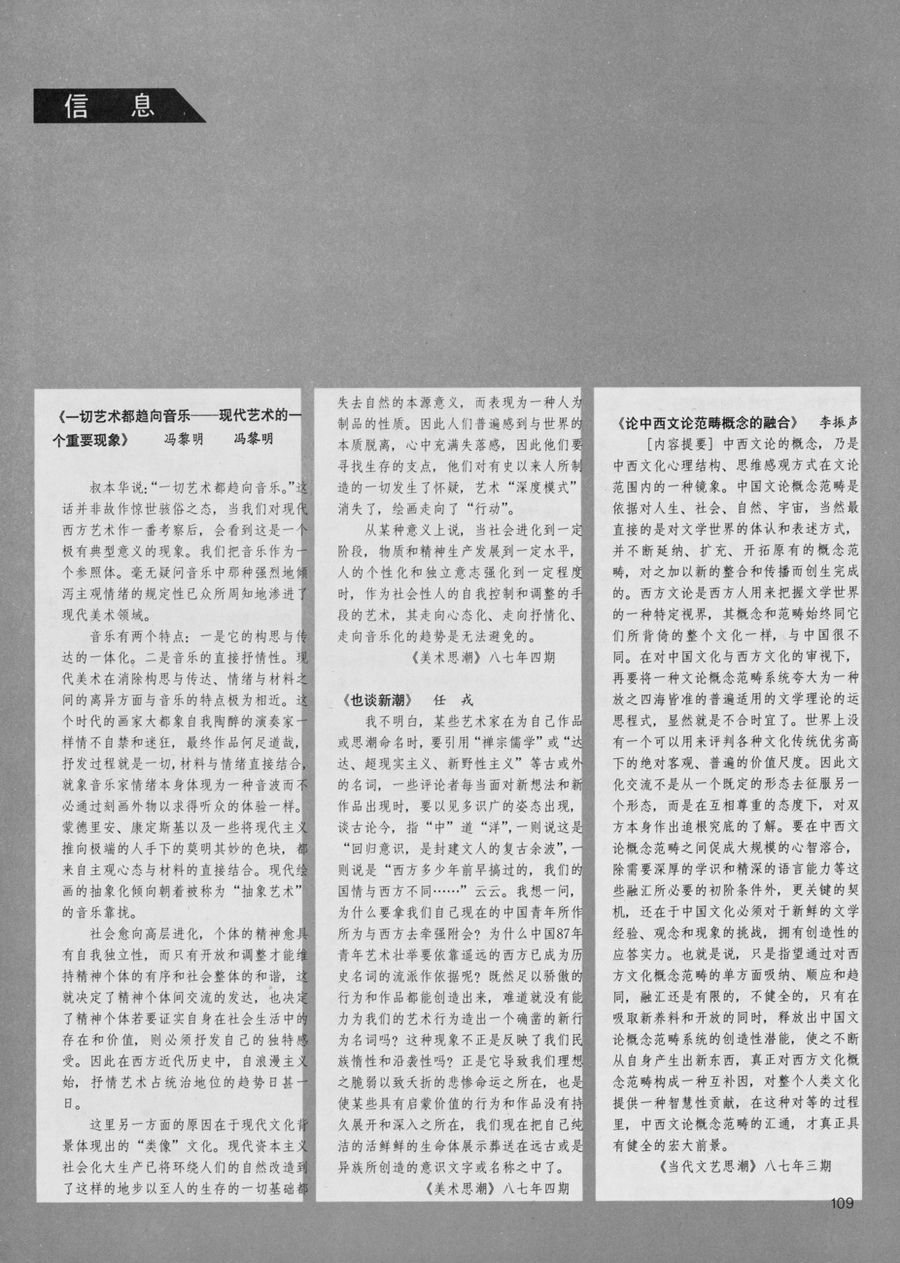 信 息
《一切艺术都趋向音乐——现代艺术的一
个重要现象》 冯黎明 冯黎明
叔本华说：“一切艺术都趋向音乐。”这
话并非故作惊世骇俗之态，当我们对现代
西方艺术作一番考察后，会看到这是一个
极有典型意义的现象。我们把音乐作为一
个参照体。毫无疑问音乐中那种强烈地倾
泻主观情绪的规定性已众所周知地渗进了
现代美术领域。
音乐有两个特点：一是它的构思与传
达的一体化。二是音乐的直接抒情性。现
代美术在消除构思与传达、情绪与材料之
间的离异方面与音乐的特点极为相近。这
个时代的画家大都象自我陶醉的演奏家一
样情不自禁和迷狂，最终作品何足道哉，
抒发过程就是一切，材料与情绪直接结合，
就象音乐家情绪本身体现为一种音波而不
必通过刻画外物以求得听众的体验一样。
蒙德里安、康定斯基以及一些将现代主义
推向极端的人手下的莫明其妙的色块，都
来自主观心态与材料的直接结合。现代绘
画的抽象化倾向朝着被称为“抽象艺术”
的音乐靠拢。
社会愈向高层进化，个体的精神愈具
有自我独立性，而只有开放和调整才能维
持精神个体的有序和社会整体的和谐，这
就决定了精神个体间交流的发达，也决定
了精神个体若要证实自身在社会生活中的
存在和价值，则必须抒发自己的独特感
受。因此在西方近代历史中，自浪漫主义
始，抒情艺术占统治地位的趋势日甚一
日。
这里另一方面的原因在于现代文化背
景体现出的“类像”文化。现代资本主义
社会化大生产已将环绕人们的自然改造到
了这样的地步以至人的生存的一切基础都
失去自然的本源意义，而表现为一种人为
制品的性质。因此人们普遍感到与世界的
本质脱离，心中充满失落感，因此他们要
寻找生存的支点，他们对有史以来人所制
造的一切发生了怀疑，艺术“深度模式”
消失了，绘画走向了“行动”。
从某种意义上说，当社会进化到一定
阶段，物质和精神生产发展到一定水平，
人的个性化和独立意志强化到一定程度
时，作为社会性人的自我控制和调整的手
段的艺术，其走向心态化、走向抒情化、
走向音乐化的趋势是无法避免的。
《美术思潮》八七年四期
《也谈新潮》 任 戎
我不明白，某些艺术家在为自己作品
或思潮命名时，要引用“禅宗儒学”或“达
达、超现实主义、新野性主义”等古或外
的名词，一些评论者每当面对新想法和新
作品出现时，要以见多识广的姿态出现，
谈古论今，指“中”道“洋”，一则说这是
“回归意识，是封建文人的复古余波”，一
则说是“西方多少年前早搞过的，我们的
国情与西方不同……”云云。我想一问，
为什么要拿我们自己现在的中国青年所作
所为与西方去牵强附会？为什么中国87年
青年艺术壮举要依靠遥远的西方已成为历
史名词的流派作依据呢？既然足以骄傲的
行为和作品都能创造出来，难道就没有能
力为我们的艺术行为造出一个确凿的新行
为名词吗？这种现象不正是反映了我们民
族惰性和沿袭性吗？正是它导致我们理想
之脆弱以致夭折的悲惨命运之所在，也是
使某些具有启蒙价值的行为和作品没有持
久展开和深入之所在，我们现在把自己纯
洁的活鲜鲜的生命体展示葬送在远古或是
异族所创造的意识文字或名称之中了。
《美术思潮》八七年四期
《论中西文论范畴概念的融合》 李振声
［内容提要］中西文论的概念，乃是
中西文化心理结构、思维感观方式在文论
范围内的一种镜象。中国文论概念范畴是
依据对人生、社会、自然、宇宙，当然最
直接的是对文学世界的体认和表述方式，
并不断延纳、扩充、开拓原有的概念范
畴，对之加以新的整合和传播而创生完成
的。西方文论是西方人用来把握文学世界
的一种特定视界，其概念和范畴始终同它
们所背倚的整个文化一样，与中国很不
同。在对中国文化与西方文化的审视下，
再要将一种文论概念范畴系统夸大为一种
放之四海皆准的普遍适用的文学理论的运
思程式，显然就是不合时宜了。世界上没
有一个可以用来评判各种文化传统优劣高
下的绝对客观、普遍的价值尺度。因此文
化交流不是从一个既定的形态去征服另一
个形态，而是在互相尊重的态度下，对双
方本身作出追根究底的了解。要在中西文
论概念范畴之间促成大规模的心智溶合，
除需要深厚的学识和精深的语言能力等这
些融汇所必要的初阶条件外，更关键的契
机，还在于中国文化必须对于新鲜的文学
经验、观念和现象的挑战，拥有创造性的
应答实力。也就是说，只是指望通过对西
方文化概念范畴的单方面吸纳、顺应和趋
同，融汇还是有限的，不健全的，只有在
吸取新养料和开放的同时，释放出中国文
论概念范畴系统的创造性潜能，使之不断
从自身产生出新东西，真正对西方文化概
念范畴构成一种互补因，对整个人类文化
提供一种智慧性贡献，在这种对等的过程
里，中西文论概念范畴的汇通，才真正具
有健全的宏大前景。
《当代文艺思潮》八七年三期
109